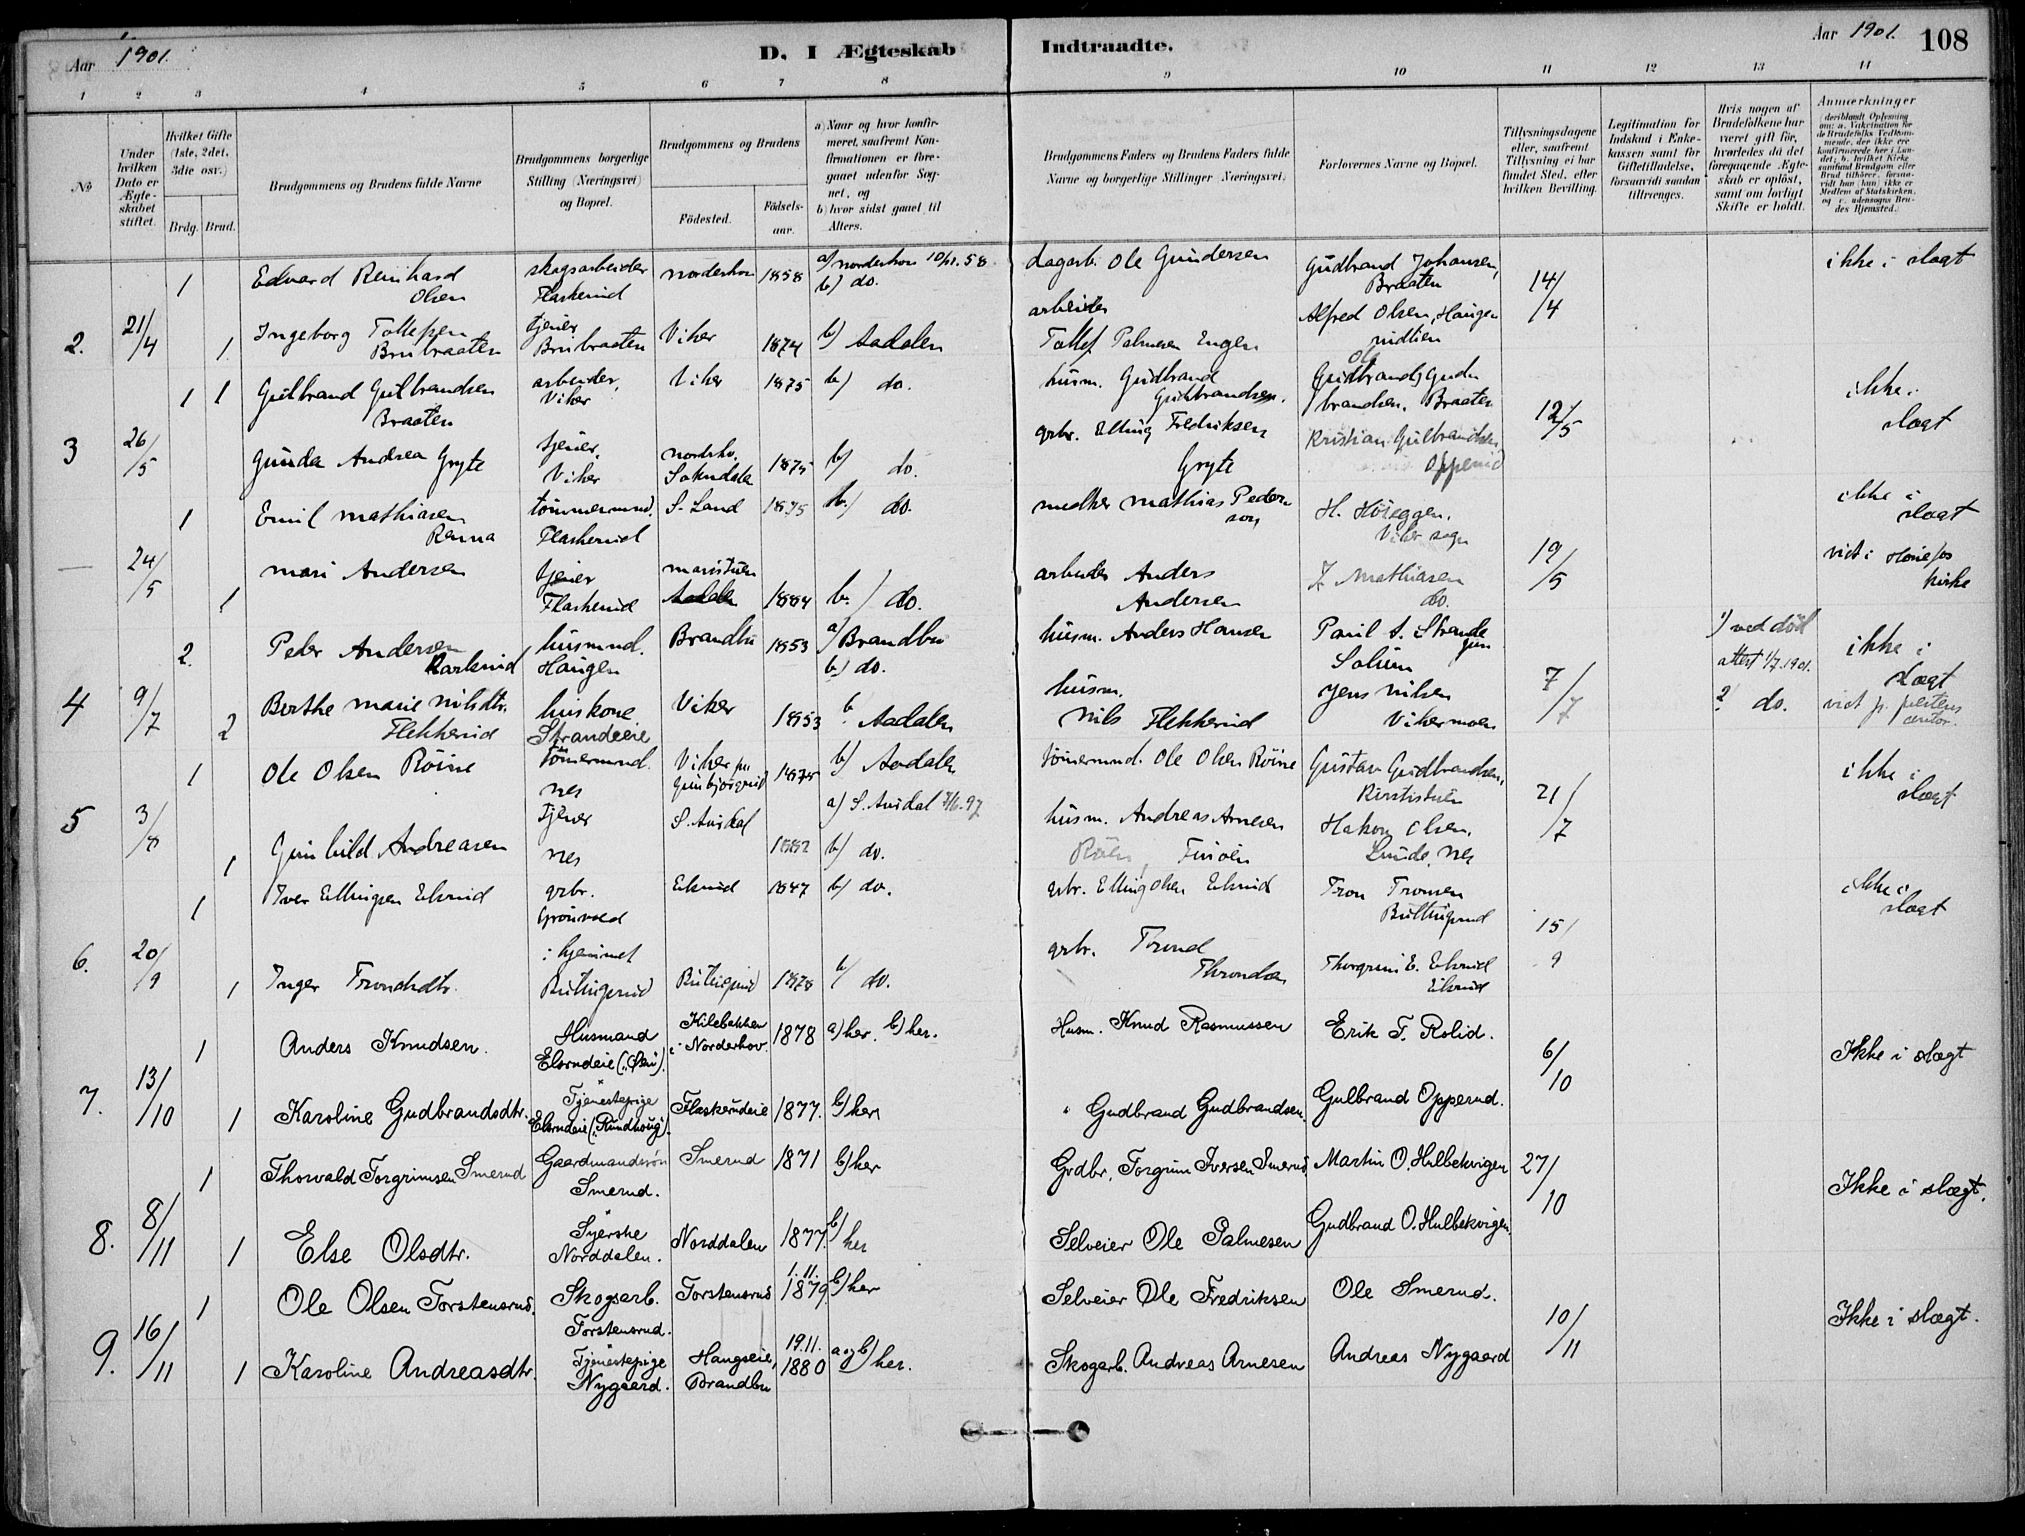 Aar 1901.
D. I Ægteskab Indtraadte.
Aar 1901. 108
1 2 3 4 5 6 7 8 9 10 11 12 13 14
No
Under hvilken Dato er Ægteskabet stiftet.
Hvilket Gifte (1ste, 2det, 3die osv.)
Brdg. Brud.
Brudgommens og Brudens fulde Navne
Brudgommens borgerlige Stilling (Næringsvei) og Bopæl.
Brudgommens og Brudens
Födested. Födsels-aar.
a) Naar og hvor konfirmeret, saafremt Konfirmationen er foregaaet udenfor Sognet, og
b) hvor sidst gaaet til Alters.
Brudgommens Faders og Brudens Faders fulde Navne og borgerlige Stillinger (Næringsvei).
Forlovernes Navne og Bopæl.
Tillysningsdagene eller, saafremt Tillysning ei har fundet Sted, efter hvilken Bevilling.
Legitimation for Indskud i Enkekassen samt for Giftetilladelse, forsaavidt saadan tiltrænges.
Hvis nogen af Brudefolkene har været gift för, hvorledes da det foregaaende Ægteskab er oplöst, samt om lovligt Skifte er holdt.
Anmærkninger (deriblandt Oplysning om: a. Vakcination for de Brudefolks Vedkommende, der ikke ere konfirmerede her i Landet; b. hvilket Kirkesamfund Brudgom eller Brud tilhörer, forsaavidt han (hun) ikke er Medlem af Statskirken, og c. udensogns Brudes Hjemsted.)
1 Edvard Reinhard Olsen skogsarbeider Flaskerud Norderhov 1858 a) Norderhov b) do. dagarb. Ole Gundersen Gudbrand Johansen, Braaten 14/4 ikke i slægt
2. 21/4 1 Ingeborg Tollefsen Brubraaten tjener Brubraaten Viker 1874 b) Aadalen arbeider Tollef Palmesen Engen Alfred Olsen, Haugen
1 1 Gulbrand Gulbrandsen Braaten arbeider, Viker Viker 1875 b) do. husm. Gudbrand Gudbrandsen. Gudbrand Gudbrandsen, Braaten 12/5 ikke i slægt
3 26/5 Gunda Andrea Gryte tjener, Viker Norderhov. Soknedalen 1875 b) do. grbr. Elling Fredriksen Gryte Kristian Gulbrandsen Opperud
1 Emil Mathiasen Ramna tömmermand. Flaskerud S. Land 1875 b.) do. Mathias Pedersen H. Höieggen, Viker sogn 19/5 ikke i slægt
— 24/5 1 Mari Andersen tjener Flaskerud Aadalen 1884 b.) do. arbeider Anders Andersen J Mathiasen do. viet i Hönefos kirke
2. Peder Andersen husmnd. Haugen Brandbu 1853 a) Brandbu b) do. husm. Anders Hansen Paul A. Strande Solum 7/7 1) ved död attest 1/7 1901. ikke i slægt
4 9/7 2 Berthe Marie Nilsdtr. Flekkerud huskone Strandeie Viker 1853 b Aadalen husm. Nils Flekkerud Jens Nilsen Vikermoen 2) do.
1 Ole Olsen Röine tömermnd. nes Viker 1875 b) Aadalen tömermnd. Ole Olsen Röine Gustav Gudbrandsen, Kirstistuen 21/7 ikke i slægt
5 3/8 1 Gunhild Andreasen Tjener nes S. Aurdal 1882 a) S. Aurdal b) do. husm. Andreas Arnesen Hakon Olsen, Lunde, nes
1 Iver Ellingsen Elsrud grbr. Grönvold Elsrud 1847 b) do. grbr. Elling Olsen Elsrud Tron Tronsen Buttingsrud 15/9 ikke i slægt
6. 20/9 1 Inger Trondsdtr. i hjemmet Buttingsrud Buttingsrud 1878 b) do. grbr. Trond Throndsen Thorgrim E. Elsrud Elsrud
1 Anders Knudsen. Husmand Elsrudeie (Ösü). Kilebakken i Norderhov. 1878 a) her. b) her. Husm. Knud Rasmussen Erik T. Rolid. 6/10 Ikke i slægt
7. 13/10 1 Karoline Gudbrandsdtr. Tjenestepige Elsrudeie (Rundhaug). Flaskerudeie 1877. b) her " Gudbrand Gudbrandsen Gulbrand Opperud.
1 Thorvald Torgrimsen Smerud Gaardmandssön Smerud. Smerud 1871 b) her Grdbr. Torgrim Iversen Smerud Martin O. Hulbekvigen 27/10 Ikke i slægt.
8. 8/11 1 Else Olsdtr. Syerske Norddalen. Norddalen 1877 b) her Selveier Ole Palmesen Gudbrand O. Hulbekvigen
1 Ole Olsen Torstensrud. Skogsarb. Torstensrud. Torstensrud 1.11. 1879 b) her Selveier Ole Fredriksen Ole Smerud. 10/11 Ikke i slægt.
9. 16/11 1 Karoline Andreasdtr. Tjenestepige Nygaard. Haugseie, Brandbu 19.11. 1880 a og b) her. Skogarb. Andreas Arnesen Andreas Nygaard